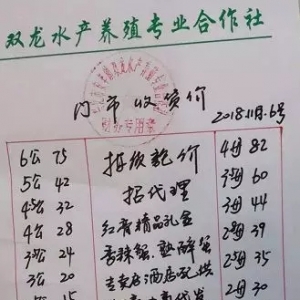 双龙水产养殖专业合作社
门市收货价
2018.11月.6号
6公 75 接领靓价 4母 82
5公 42 招代理 3.5母 60
4.5公 32 红膏精品礼盒 3母 44
4公 28 香辣蟹.熟醉蟹 2.8母 39
3.5公 24 专卖店酒店配供 2.5母 35
3公 20 2母 30
15